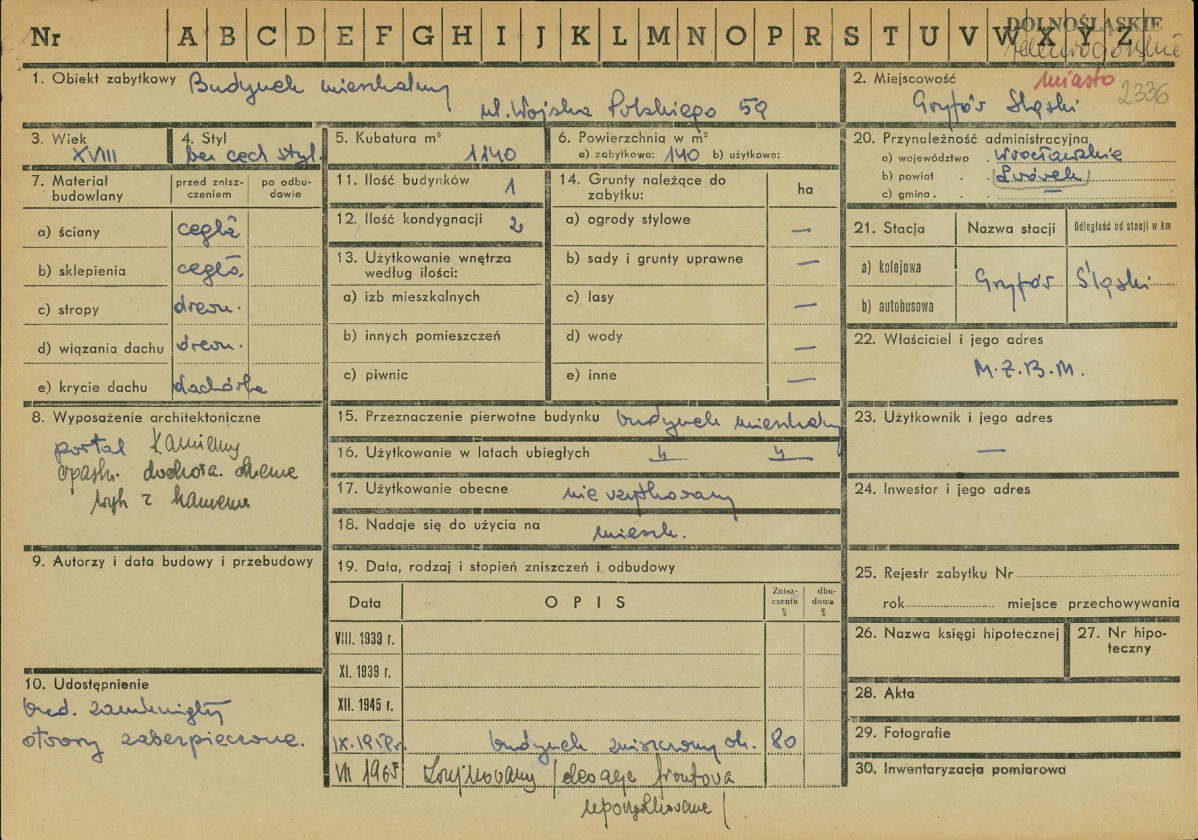 Nr A B C D E F G H I J K L M N O P R S T U V W X Y Z
DOLNOŚLĄSKIE
1. Obiekt zabytkowy Budynek mieszkalny
ul. Wojska Polskiego 59
2. Miejscowość miasto 2336
Gryfów Śląski
3. Wiek
XVIII
4. Styl
bez cech styl.
5. Kubatura m³
1140
6. Powierzchnia w m²
a) zabytkowa: 140 b) użytkowa:
7. Materiał budowlany
przed zniszczeniem
po odbudowie
a) ściany cegła
b) sklepienia cegła
c) stropy drewn.
d) wiązania dachu drewn.
e) krycie dachu dachówka
8. Wyposażenie architektoniczne
portal kamienny
z kamienia
9. Autorzy i data budowy i przebudowy
10. Udostępnienie
bud. zamknięty
otwory zabezpieczone.
11. Ilość budynków 1
12. Ilość kondygnacji 2
13. Użytkowanie wnętrza według ilości:
a) izb mieszkalnych
b) innych pomieszczeń
c) piwnic
14. Grunty należące do zabytku:
ha
a) ogrody stylowe —
b) sady i grunty uprawne —
c) lasy —
d) wody —
e) inne —
15. Przeznaczenie pierwotne budynku budynek mieszkalny
16. Użytkowanie w latach ubiegłych " "
17. Użytkowanie obecne nie użytkowany
18. Nadaje się do użycia na mieszk.
19. Data, rodzaj i stopień zniszczeń i odbudowy
Data OPIS Zniszczenia % dbudowa %
VIII. 1939 r.
XI. 1939 r.
XII. 1945 r.
IX. 1958 r. budynek zniszczony ok. 80
VII 1965 Zrujnowany frontowa
20. Przynależność administracyjna
a) województwo wrocławskie
b) powiat Lwówek
c) gmina —
21. Stacja
Nazwa stacji
Odległość od stacji w km
a) kolejowa
b) autobusowa
Gryfów Śląski
22. Właściciel i jego adres
M.Z.B.M.
23. Użytkownik i jego adres
—
24. Inwestor i jego adres
25. Rejestr zabytku Nr
rok miejsce przechowywania
26. Nazwa księgi hipotecznej
27. Nr hipoteczny
28. Akta
29. Fotografie
30. Inwentaryzacja pomiarowa